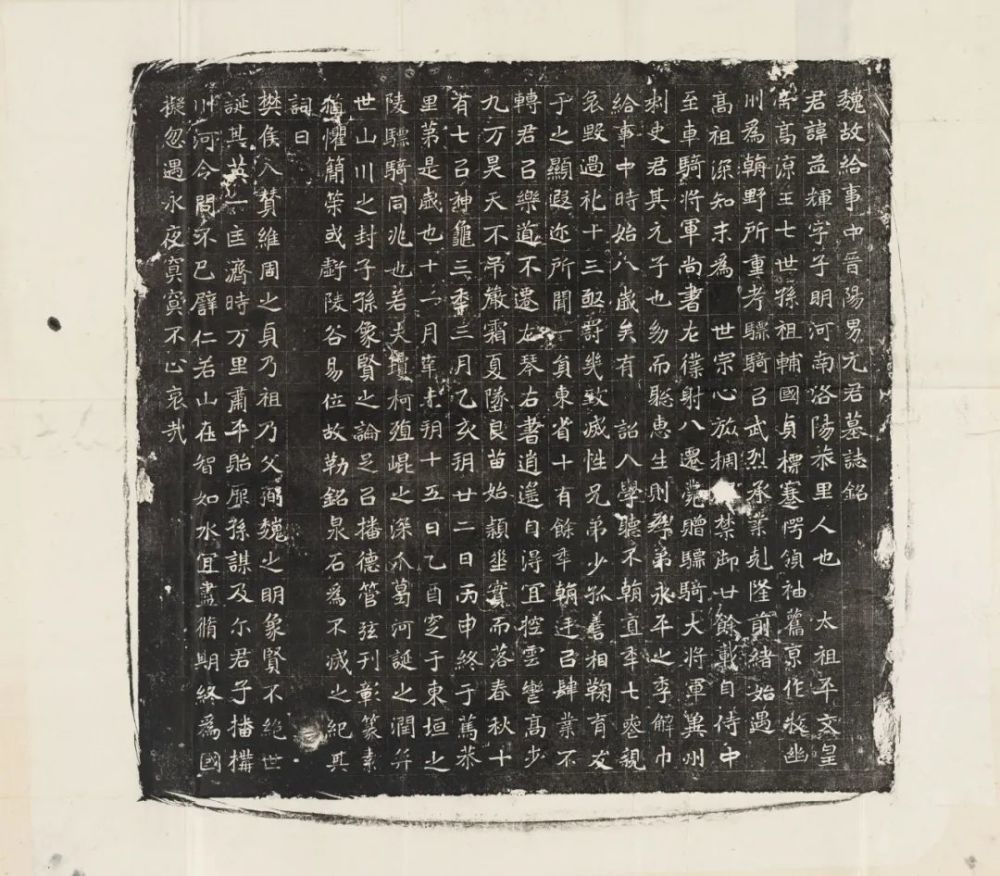 魏故給事中晉陽男元君墓誌銘
君諱孟輝字子明河南洛陽旅里人也 太祖平文皇
帝高涼王七世孫祖輔國貞標蹇愕領袖舊京作牧幽
川為朝野所重考驃騎以武烈承業剋隆前緒始遇
高祖深知末為 世宗心旅裯禁御廿餘載自侍中
至車騎將軍尚書左僕射八遷薨贈驃騎大將軍冀州
刺史君其元子也幼而聡惠生則孝弟永平之季解巾
給事中時始八歲矣有 詔入學聽不朝直年七喪親
哀毀過礼十三亟罸幾致滅性兄弟少孤善相鞠育友
于之顯遐迩所聞一貟東省十有餘年朝以肆業不
轉君以樂道不遷左琴右書逍遙自得冝控雲轡高步
九万昊天不弔嚴霜夏墜良苗始穎華實而落春秋十
有七以神龜三年三月乙亥朔廿二日丙申終于篤恭
里第是歲也十一月辛未朔十五日乙酉窆于東垣之
陵驃騎同兆也若夫壇柯殖崐之深爪葛河誕之潤弈
世山川之封子孫象賢之論足以播德管弦刊彰篆素
猶懼簡築或虧陵谷易位故勒銘泉石為不滅之紀其
詞曰
樊侯入賛維周之貞乃祖乃父弼魏之明象賢不絕世
誕其英一匡濟時万里肅平貽厥孫謀及尔君子播搆
川河令聞不已譬仁若山在智如水冝盡脩期終為國
擬忽遇永夜寘寘不心哀哉